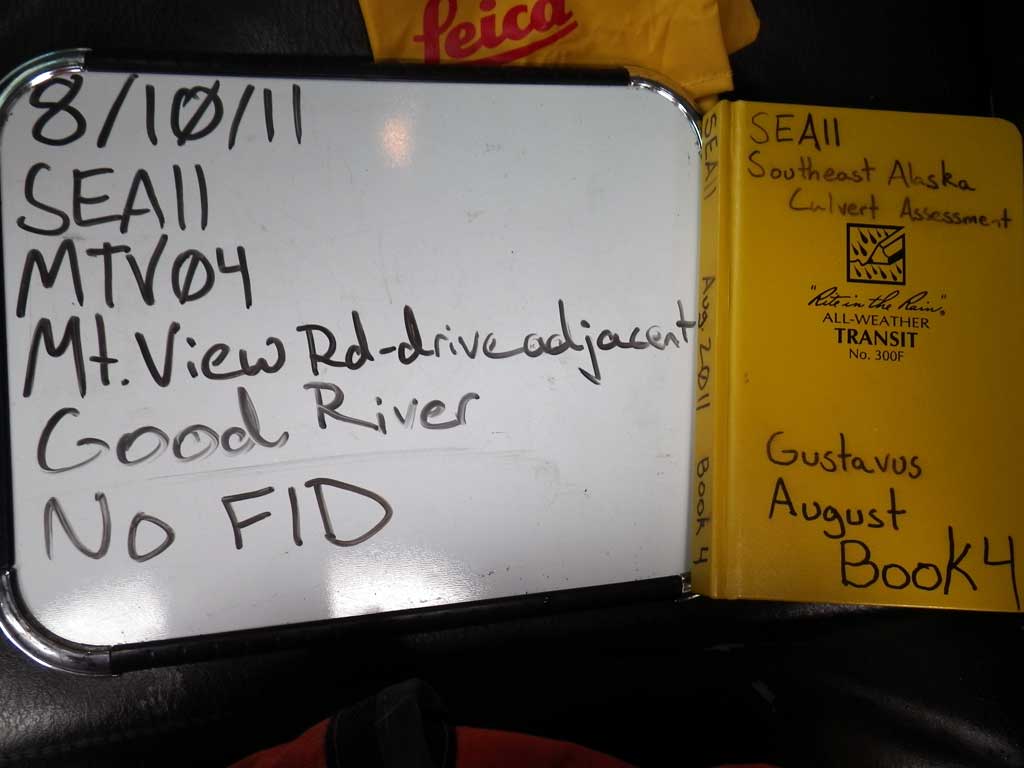 Leica
8/10/11
SEA11
MTV04
Mt. View Rd-drive adjacent
Good River
No FID
SEA11 Aug 2011 Book 4
SEA11
Southeast Alaska
Culvert Assessment
"Rite in the Rain"®
ALL-WEATHER
TRANSIT
No. 300F
Gustavus
August
Book 4